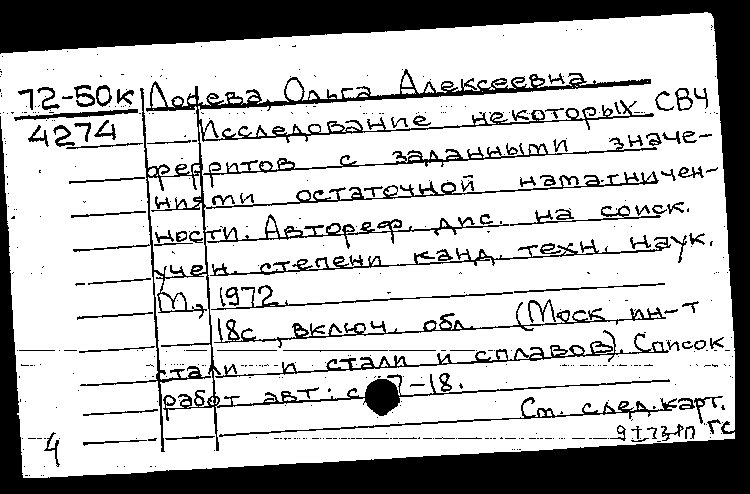 72-50к Лосева, Ольга Алексеевна.
4274 Исследование некоторых СВЧ
ферритов с заданными значе-
ниями остаточной намагничен-
ности. Автореф. дис. на соиск.
учен. степени канд. техн. наук.
М., 1972.
18с., включ. обл. (Моск. ин-т
стали и стали и сплавов). Список
работ авт: с. 7-18.
См. след. карт.
4 ГС